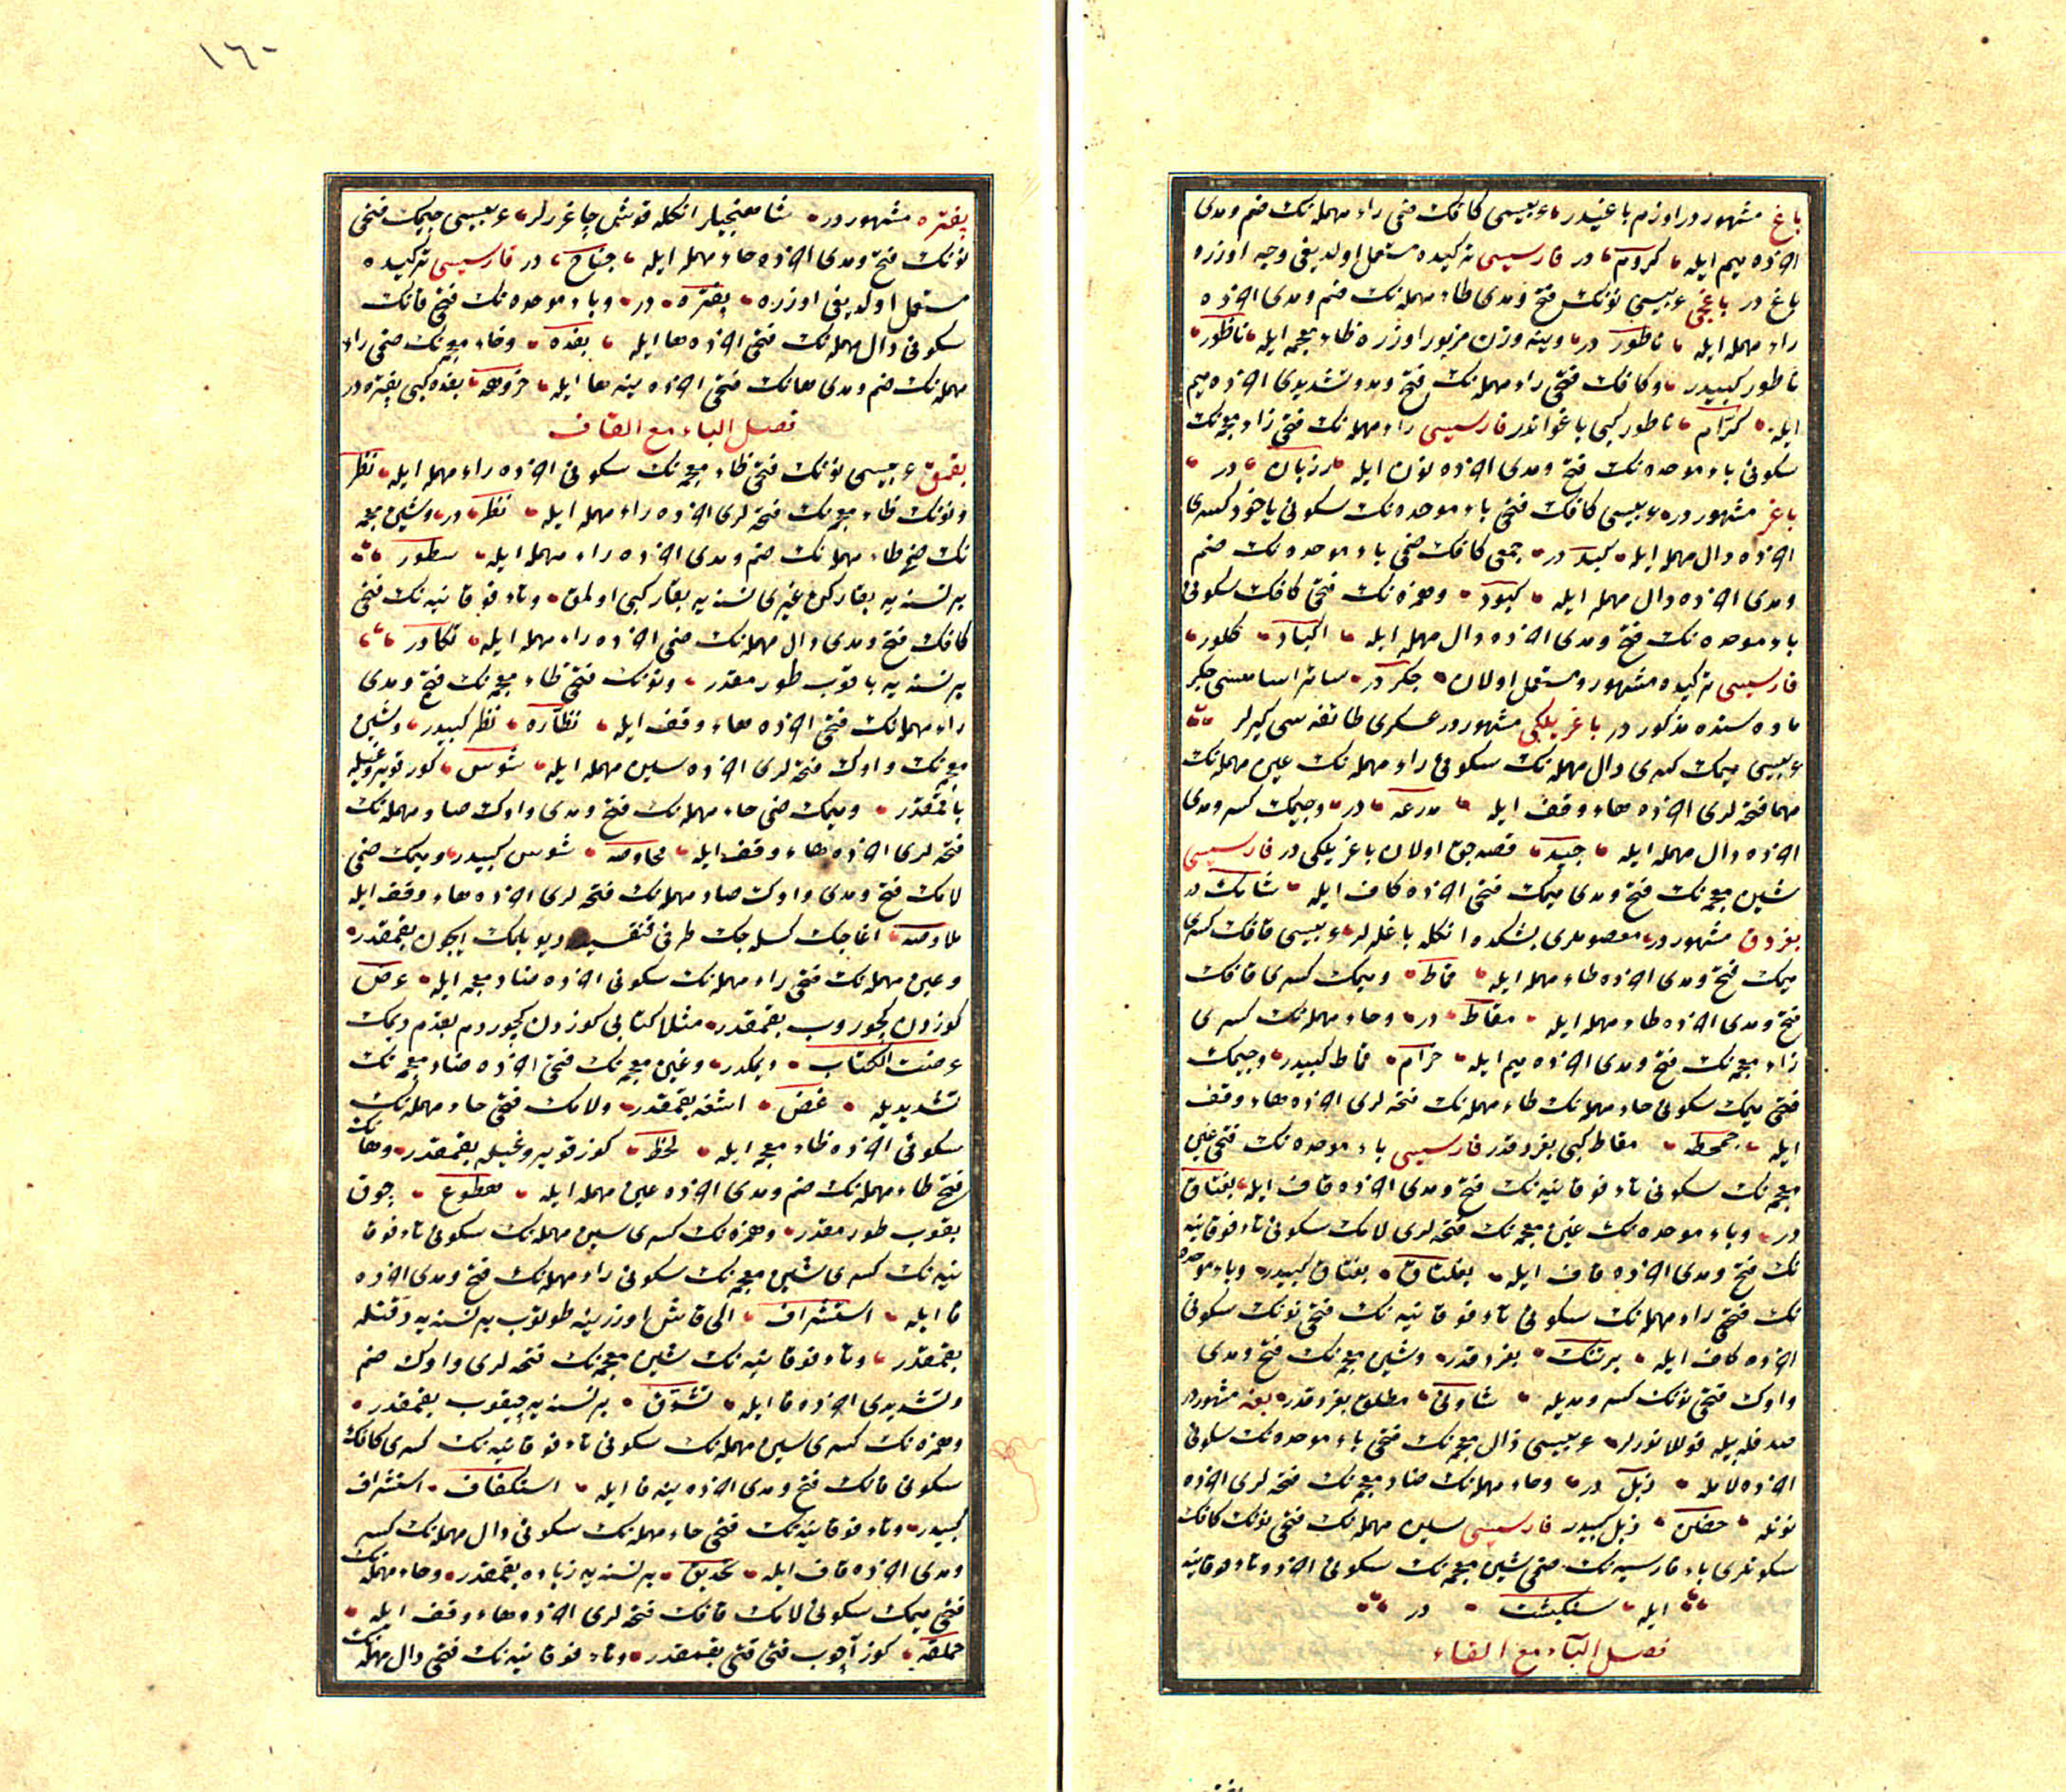 باغ مشهوردر اوزم باغیدر عربیسی کافک ضمی راء مهمله نک ضم ومدی
اخرنده میم ایله کروم در فارسیسی ترکیده مستعمل اولدیغی وجه اوزره
باغ در باغجی عربیسی نونک فتح ومدی طاء مهمله نک ضم ومدی اخرنده
راء مهمله ایله ناطور در وینه وزن مزبور اوزره ظاء معجمه ایله ناظور
ناطور کبیدر وکافک فتحی راء مهمله نک فتح ومد وتشدیدی اخرنده میم
ایله کرّام ناطور کبی باغواندر فارسیسی راء مهمله نک فتحی زاء معجمه نک
سکونی باء موحده نک فتح ومدی اخرنده نون ایله رزبان در
باغر مشهوردر عربیسی کافک فتحی باء موحده نک سکونی یاخود کسری
اخرنده دال مهمله ایله کبد در جمعی کافک ضمی باء موحده نک ضم
ومدی اخرنده دال مهمله ایله کبود وهمزه نک فتحی کافک سکونی
باء موحده نک فتح ومدی اخرنده دال مهمله ایله اکباد کلور
فارسیسی ترکیده مشهور ومستعمل اولان جکر در سائر اسامیسی جکر
ماده سنده مذکور در باغر یلکی مشهوردر عسکری طائفه سی کیرلر
عربیسی میمک کسری دال مهمله نک سکونی راء مهمله نک عین مهمله نک
فتحه لری اخرنده هاء وقف ایله مدرعه در وجیمک کسر ومدی
اخرنده دال مهمله ایله جید قصه جق اولان باغر یلکی در فارسیسی
شین معجمه نک فتح ومدی میمک فتحی اخرنده کاف ایله شامک در
بغردق مشهوردر معصوملری بشکده انکله باغلرلر عربیسی قافک کسری
میمک فتح ومدی اخرنده طاء مهمله ایله قماط ومیمک کسری قافک
فتح ومدی اخرنده طاء مهمله ایله مقاط در وحاء مهمله نک کسری
زاء معجمه نک فتح ومدی اخرنده میم ایله حزام قماط کبیدر وجیمک
فتحی میمک سکونی حاء مهمله نک طاء مهمله نک فتحه لری اخرنده هاء وقف
ایله جمحطه مقاط کبی بغردقدر فارسیسی باء موحده نک فتحی غین
معجمه نک سکونی تاء فوقانیه نک فتح ومدی اخرنده قاف ایله بغتاق
در وباء موحده نک غین معجمه نک فتحه لری لامک سکونی تاء فوقانیه
نک فتح ومدی اخرنده قاف ایله بغلتاق بغتاق کبیدر وباء موحده
نک فتحی راء مهمله نک سکونی تاء فوقانیه نک فتحی نونک سکونی
اخرنده کاف ایله برتنک بغردقدر وشین معجمه نک فتح ومدی
واوک فتحی نونک کسر ومدیله شاونی مطلق بغردقدر بغه مشهوردر
صدفلریله قوللانورلر عربیسی ذال معجمه نک فتحی باء موحده نک سکونی
اخرنده لامله ذبل در وحاء مهمله نک ضاد معجمه نک فتحه لری اخرنده
نونله حضن ذبل کبیدر فارسیسی سین مهمله نک فتحی نونک کافک
سکونلری باء فارسیه نک ضمی شین معجمه نک سکونی اخرنده تاء فوقانیه
ایله سنکپشت در
فصل الباء مع الفاء
١٦٠
بفتره مشهوردر شامعنجیلر انکله قوشلر چاغررلر عربیسی جیمک فتحی
نونک فتح ومدی اخرنده حاء مهمله ایله جناح در فارسیسی ترکیده
مستعمل اولدیغی اوزره بفتره در وباء موحده نک فتحی فانک
سکونی دال مهمله نک فتحی اخرنده ها ایله بفده وخاء معجمه نک ضمی راء
مهمله نک ضم ومدی هانک فتحی اخرنده ینه ها ایله خروهه بفده کبی بفتره در
فصل الباء مع القاف
بقمق عربیسی نونک فتحی ظاء معجمه نک سکونی اخرنده راء مهمله ایله نظر
ونونک ظاء معجمه نک فتحه لری اخرنده راء مهمله ایله نظر در وشین معجمه
نک ضمی طاء مهمله نک ضم ومدی اخرنده راء مهمله ایله شطور
بر نسنه یه بقارکن غیری نسنه یه بقار کبی اولمق وتاء فوقانیه نک فتحی
کافک فتح ومدی دال مهمله نک ضمی اخرنده راء مهمله ایله تکادر
بر نسنه یه باقوب طورمقدر ونونک فتحی ظاء معجمه نک فتح ومدی
راء مهمله نک فتحی اخرنده هاء وقف ایله نظاره نظر کبیدر وشین
معجمه نک واوک فتحه لری اخرنده سین مهمله ایله شوس کوز قویروغیله
باقمقدر ومیمک ضمی حاء مهمله نک فتح ومدی واوک صاد مهمله نک
فتحه لری اخرنده هاء وقف ایله محاوصه شوس کبیدر ومیمک ضمی
لامک فتح ومدی واوک صاد مهمله نک فتحه لری اخرنده هاء وقف ایله
ملاوصه اغاجک کسله جک طرفی قنقیسیدر دیو بلمک ایچون بقمقدر
وعین مهمله نک فتحی راء مهمله نک سکونی اخرنده ضاد معجمه ایله عرض
کوزدن کچوروب بقمقدر مثلا کتابی کوزدن کچوردم بقدم دیمک
عرضت الکتاب دیمکدر وغین معجمه نک فتحی اخرنده ضاد معجمه نک
تشدیدیله غض اشغه بقمقدر ولامک فتحی حاء مهمله نک
سکونی اخرنده ظاء معجمه ایله لحظ کوز قویروغیله بقمقدر وهانک
فتحی طاء مهمله نک ضم ومدی اخرنده عین مهمله ایله هطوع چوق
بقوب طورمقدر وهمزه نک کسری سین مهمله نک سکونی تاء فوقا
نیه نک کسری شین معجمه نک سکونی راء مهمله نک فتح ومدی اخرنده
فا ایله استشراف الی قاش اوزرینه طوتوب بر نسنه یه دقتله
بقمقدر وتاء فوقانیه نک شین معجمه نک فتحه لری واوک ضم
وتشدیدی اخرنده فا ایله تشوف بر نسنه یه چیقوب بقمقدر
وهمزه نک کسری سین مهمله نک سکونی تاء فوقانیه نک کسری کافک
سکونی فانک فتح ومدی اخرنده ینه فا ایله استکفاف استشراف
کبیدر وتاء فوقانیه نک فتحی حاء مهمله نک سکونی دال مهمله نک کسر
ومدی اخرنده قاف ایله تحدیق بر نسنه یه زیاده بقمقدر وحاء مهمله نک
فتحی میمک سکونی لامک قافک فتحه لری اخرنده هاء وقف ایله
حملقه کوز آچوب قتی قتی بقمقدر وتاء فوقانیه نک فتحی دال مهمله نک